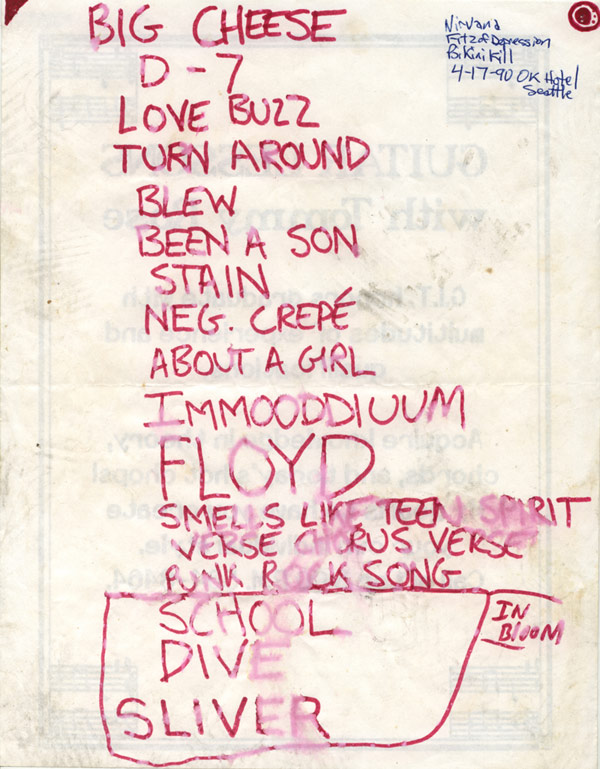 BIG CHEESE
D-7
LOVE BUZZ
TURN AROUND
BLEW
BEEN A SON
STAIN
NEG. CREPÉ
ABOUT A GIRL
IMMOODDIUUM
FLOYD
SMELLS LIKE TEEN SPIRIT
VERSE CHORUS VERSE
PUNK ROCK SONG
SCHOOL
DIVE
SLIVER
IN
BLOOM
Nirvana
Fitz of Depression
Bikini Kill
4-17-90 OK Hotel
Seattle